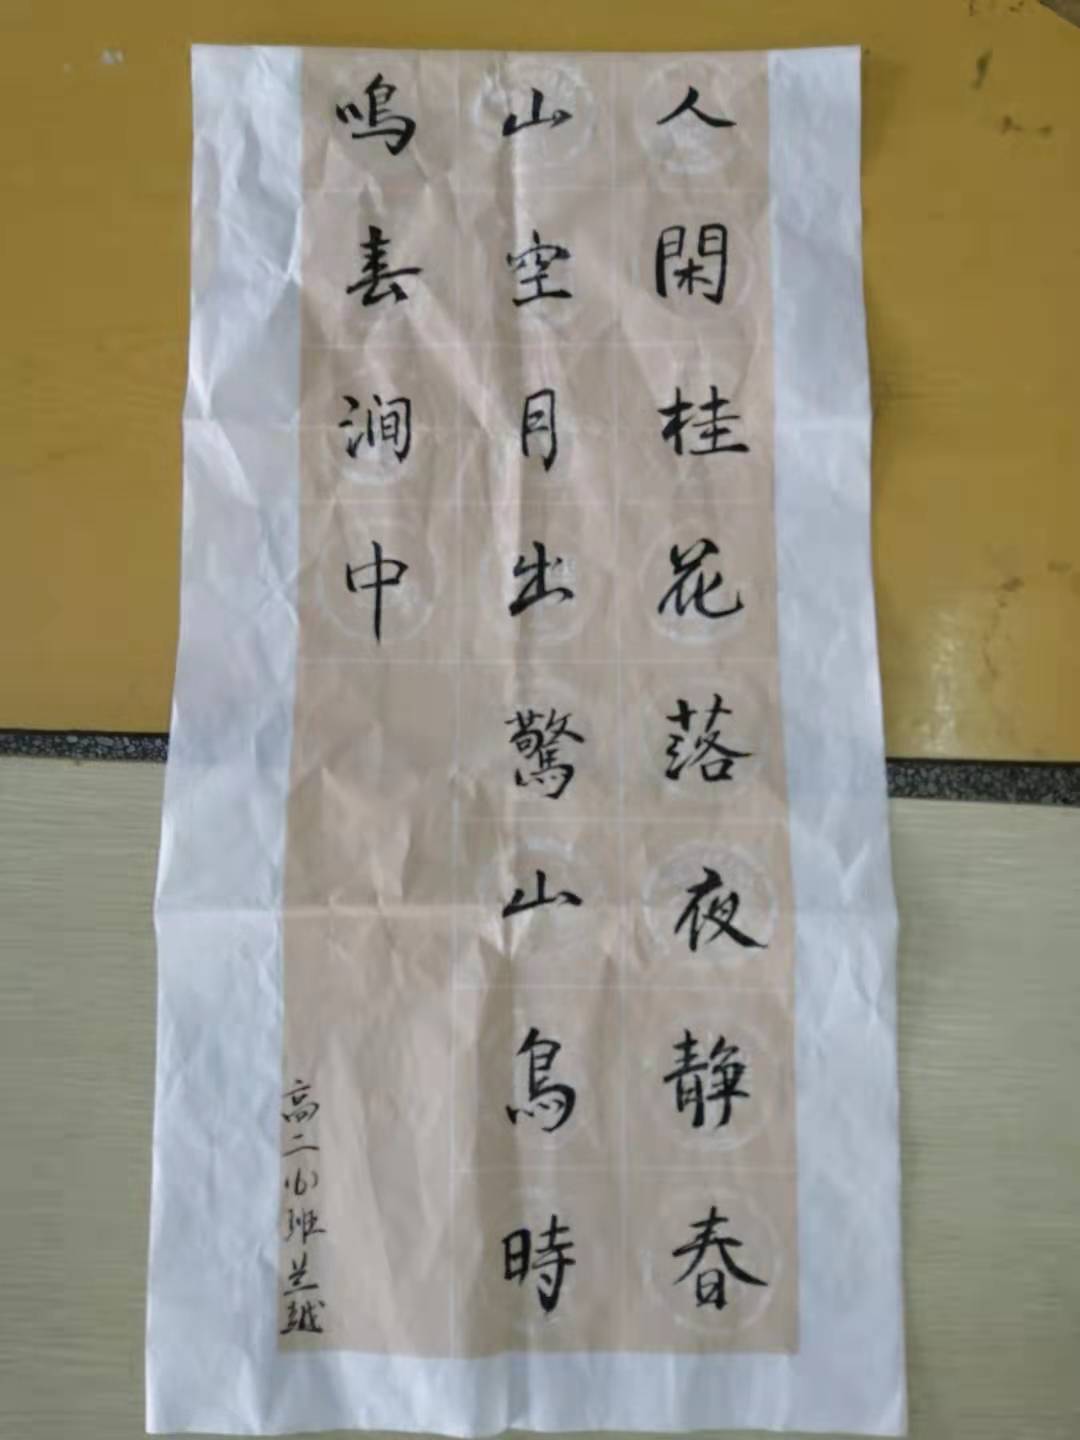 人閑桂花落夜静春
山空月出驚山鳥時
鳴春涧中
高二(6)班兰越